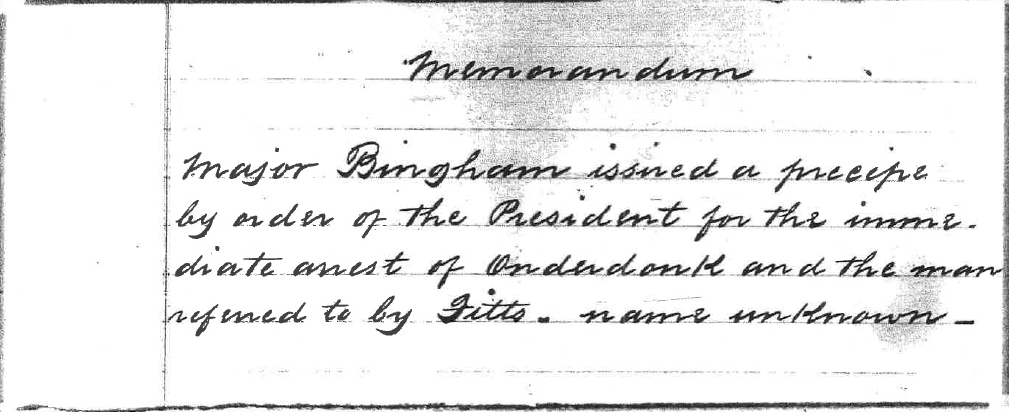 Memorandum
Major Bingham issued a precipe
by order of the President for the imme-
diate arrest of Onderdonk and the man
referred to by Fitts - name unknown -